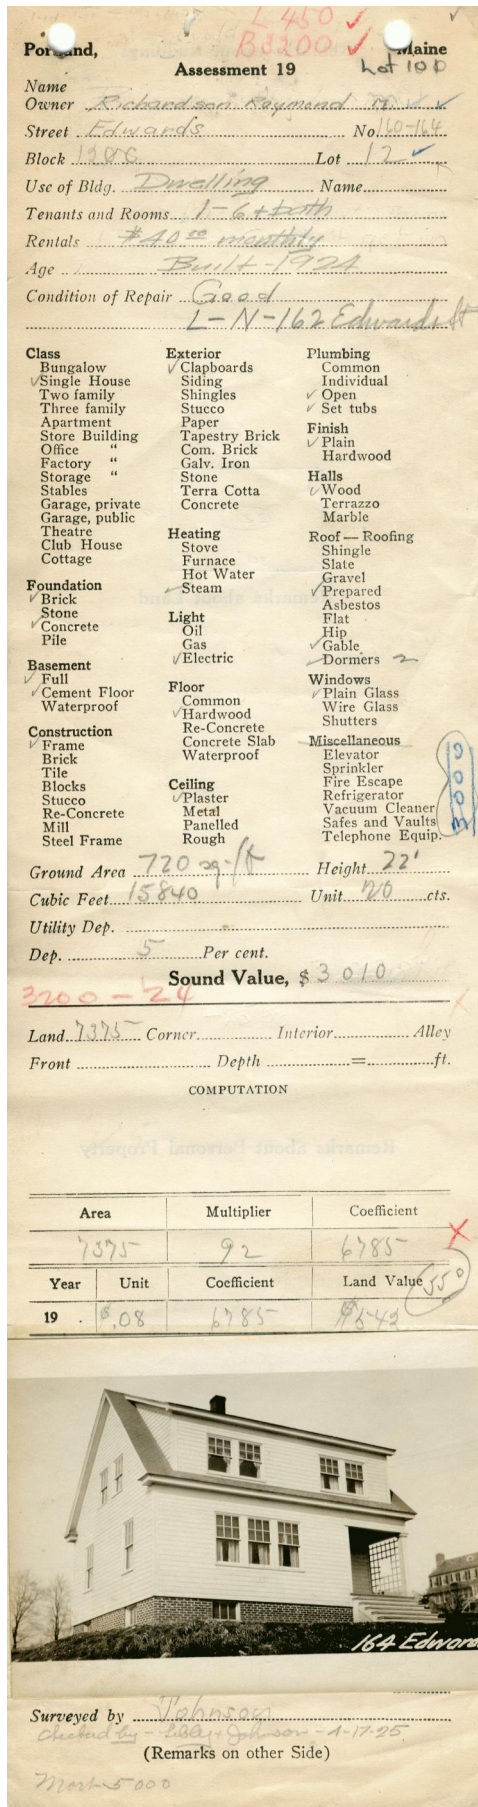 L 450
B 3200
Portland, Maine
Assessment 19 Lot 100
Name
Owner Richardson Raymond M.
Street Edwards No. 160-164
Block 120C Lot 12
Use of Bldg. Dwelling Name
Tenants and Rooms 1-6 + bath
Rentals $40.00 monthly
Age Built-1924
Condition of Repair Good
L-N-162 Edwards St
Class
Bungalow
Single House
Two family
Three family
Apartment
Store Building
Office "
Factory "
Storage "
Stables
Garage, private
Garage, public
Theatre
Club House
Cottage
Foundation
Brick
Stone
Concrete
Pile
Basement
Full
Cement Floor
Waterproof
Construction
Frame
Brick
Tile
Blocks
Stucco
Re-Concrete
Mill
Steel Frame
Exterior
Clapboards
Siding
Shingles
Stucco
Paper
Tapestry Brick
Com. Brick
Galv. Iron
Stone
Terra Cotta
Concrete
Heating
Stove
Furnace
Hot Water
Steam
Light
Oil
Gas
Electric
Floor
Common
Hardwood
Re-Concrete
Concrete Slab
Waterproof
Ceiling
Plaster
Metal
Panelled
Rough
Plumbing
Common
Individual
Open
Set tubs
Finish
Plain
Hardwood
Halls
Wood
Terrazzo
Marble
Roof — Roofing
Shingle
Slate
Gravel
Prepared
Asbestos
Flat
Hip
Gable
Dormers 2
Windows
Plain Glass
Wire Glass
Shutters
Miscellaneous
Elevator
Sprinkler
Fire Escape
Refrigerator
Vacuum Cleaner
Safes and Vaults
Telephone Equip.
3000
Ground Area 720 sq-ft Height 22'
Cubic Feet 15840 Unit 20 cts.
Utility Dep.
Dep. 5 Per cent.
Sound Value, $ 3010
3200 - 24
Land 7375 Corner Interior Alley
Front Depth = ft.
COMPUTATION
Area Multiplier Coefficient
7375 92 6785
Year Unit Coefficient Land Value 550
19 . $.08 6785 $542
164 Edward
Surveyed by Johnson
Checked by - Libby + Johnson - 4-17-25
(Remarks on other Side)
Mort 5000